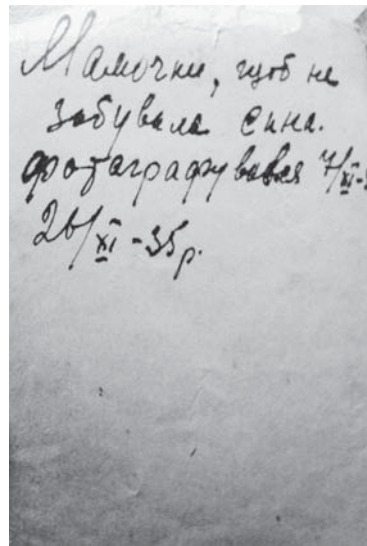 Мамочки, щоб не
забувала сина.
фотографувався 7/XI-3
26/XI-35р.